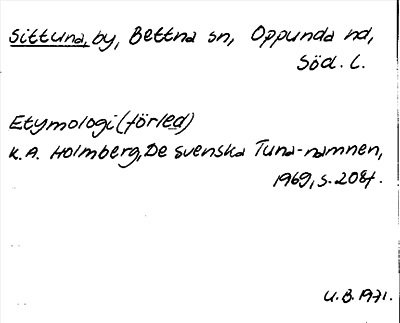 Sittuna, by, Bettna sn, Oppunda hd,
Söd. l.
Etymologi (förled)
K.A. Holmberg, De svenska Tuna-namnen,
1969, s. 208f.
U.B. 1971.